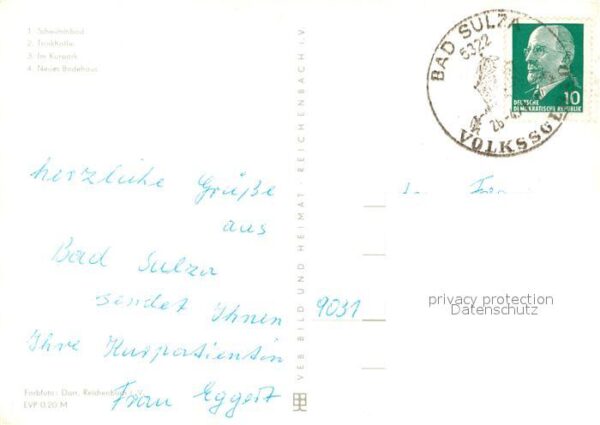 1. Schwimmbad
2. Trinkhalle
3. Im Kurpark
4. Neues Badehaus
BAD SULZA
5322
DEUTSCHE
DEMOKRATISCHE REPUBLIK
10
herzliche Grüße
aus
Bad Sulza
sendet Ihnen
Ihre Kurpatientin
Frau Eggert
VEB BILD UND HEIMAT · REICHENBACH i. V.
9031
privacy protection
Datenschutz
Farbfoto: Darr, Reichenbach
EVP 0,20 M